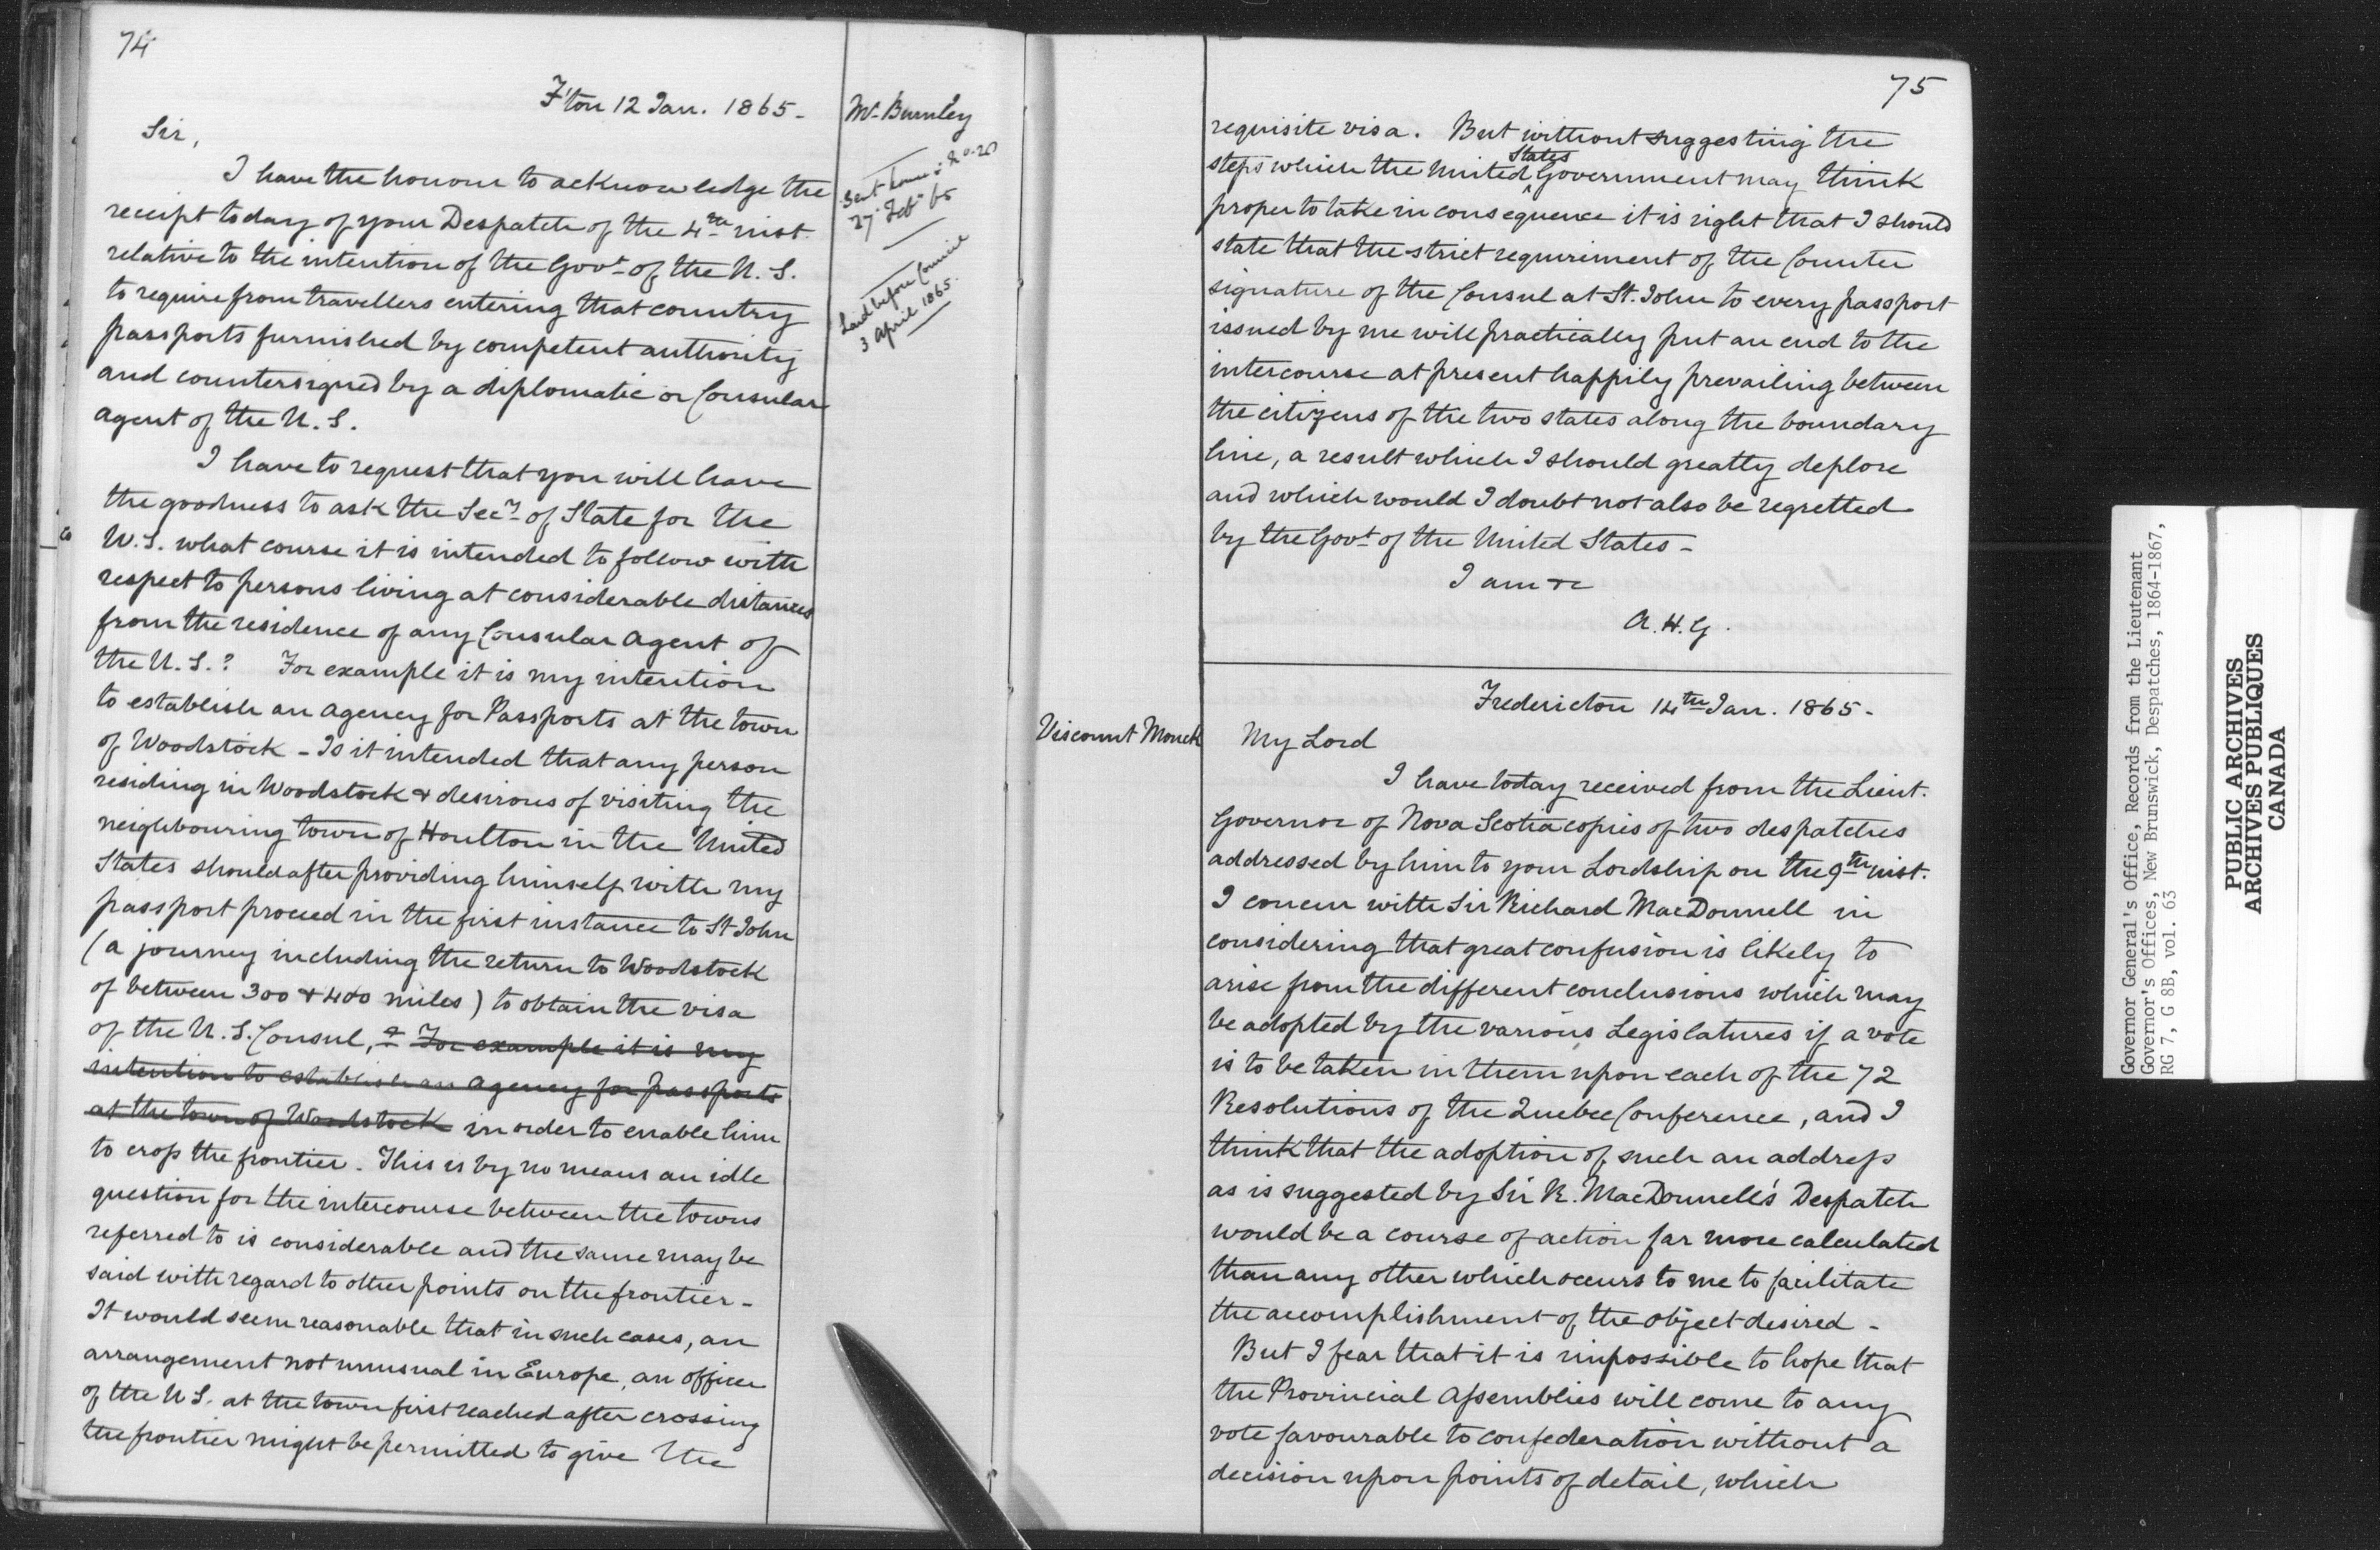 74
F'ton 12 Jan. 1865-
Mr. Burnley
Sir,
Sent home in No. 20
27 Feb 65
Laid before Council
3 April 1865.
I have the honour to acknowledge the
receipt today of your Despatch of the 4th inst.
relative to the intention of the Govt- of the U. S.
to require from travellers entering that country
passports furnished by competent authority
and countersigned by a diplomatic or Consular
agent of the U. S.
I have to request that you will have
the goodness to ask the Secy- of State for the
U. S. what course it is intended to follow with
respect to persons living at considerable distances
from the residence of any Consular Agent of
the U. S.? For example it is my intention
to establish an agency for Passports at the town
of Woodstock - Is it intended that any person
residing in Woodstock & desirous of visiting the
neighbouring town of Houlton in the United
States should after providing himself with my
passport proceed in the first instance to St John
(a journey including the return to Woodstock
of between 300 & 400 miles) to obtain the visa
of the U. S. Consul, & For example it is my
intention to establish an agency for passports
at the town of Woodstock in order to enable him
to cross the frontier. This is by no means an idle
question for the intercourse between the towns
referred to is considerable and the same may be
said with regard to other points on the frontier-
It would seem reasonable that in such cases, an
arrangement not unusual in Europe, an officer
of the U S. at the town first reached after crossing
the frontier might be permitted to give the
75
requisite visa. But without suggesting the
steps which the United States Government may think
proper to take in consequence it is right that I should
state that the strict requirement of the Counter
signature of the Consul at St. John to every passport
issued by me will practically put an end to the
intercourse at present happily prevailing between
the citizens of the two states along the boundary
line, a result which I should greatly deplore
and which would I doubt not also be regretted
by the Govt of the United States-
I am &c
A. H. G.
Fredericton 14th Jan. 1865-
Viscount Monck
My Lord
I have today received from the Lieut.
Governor of Nova Scotia copies of two despatches
addressed by him to your Lordship on the 9th inst.
I concur with Sir Richard MacDonnell in
considering that great confusion is likely to
arise from the different conclusions which may
be adopted by the various Legislatures if a vote
is to be taken in them upon each of the 72
Resolutions of the Quebec Conference, and I
think that the adoption of such an address
as is suggested by Sir R. MacDonnell's Despatch
would be a course of action far more calculated
than any other which occurs to me to facilitate
the accomplishment of the object desired-
But I fear that it is impossible to hope that
the Provincial Assemblies will come to any
vote favourable to confederation without a
decision upon points of detail, which
Governor General's Office, Records from the Lieutenant
Governor's Offices, New Brunswick, Despatches, 1864-1867,
RG 7, G 8B, vol. 63
PUBLIC ARCHIVES
ARCHIVES PUBLIQUES
CANADA